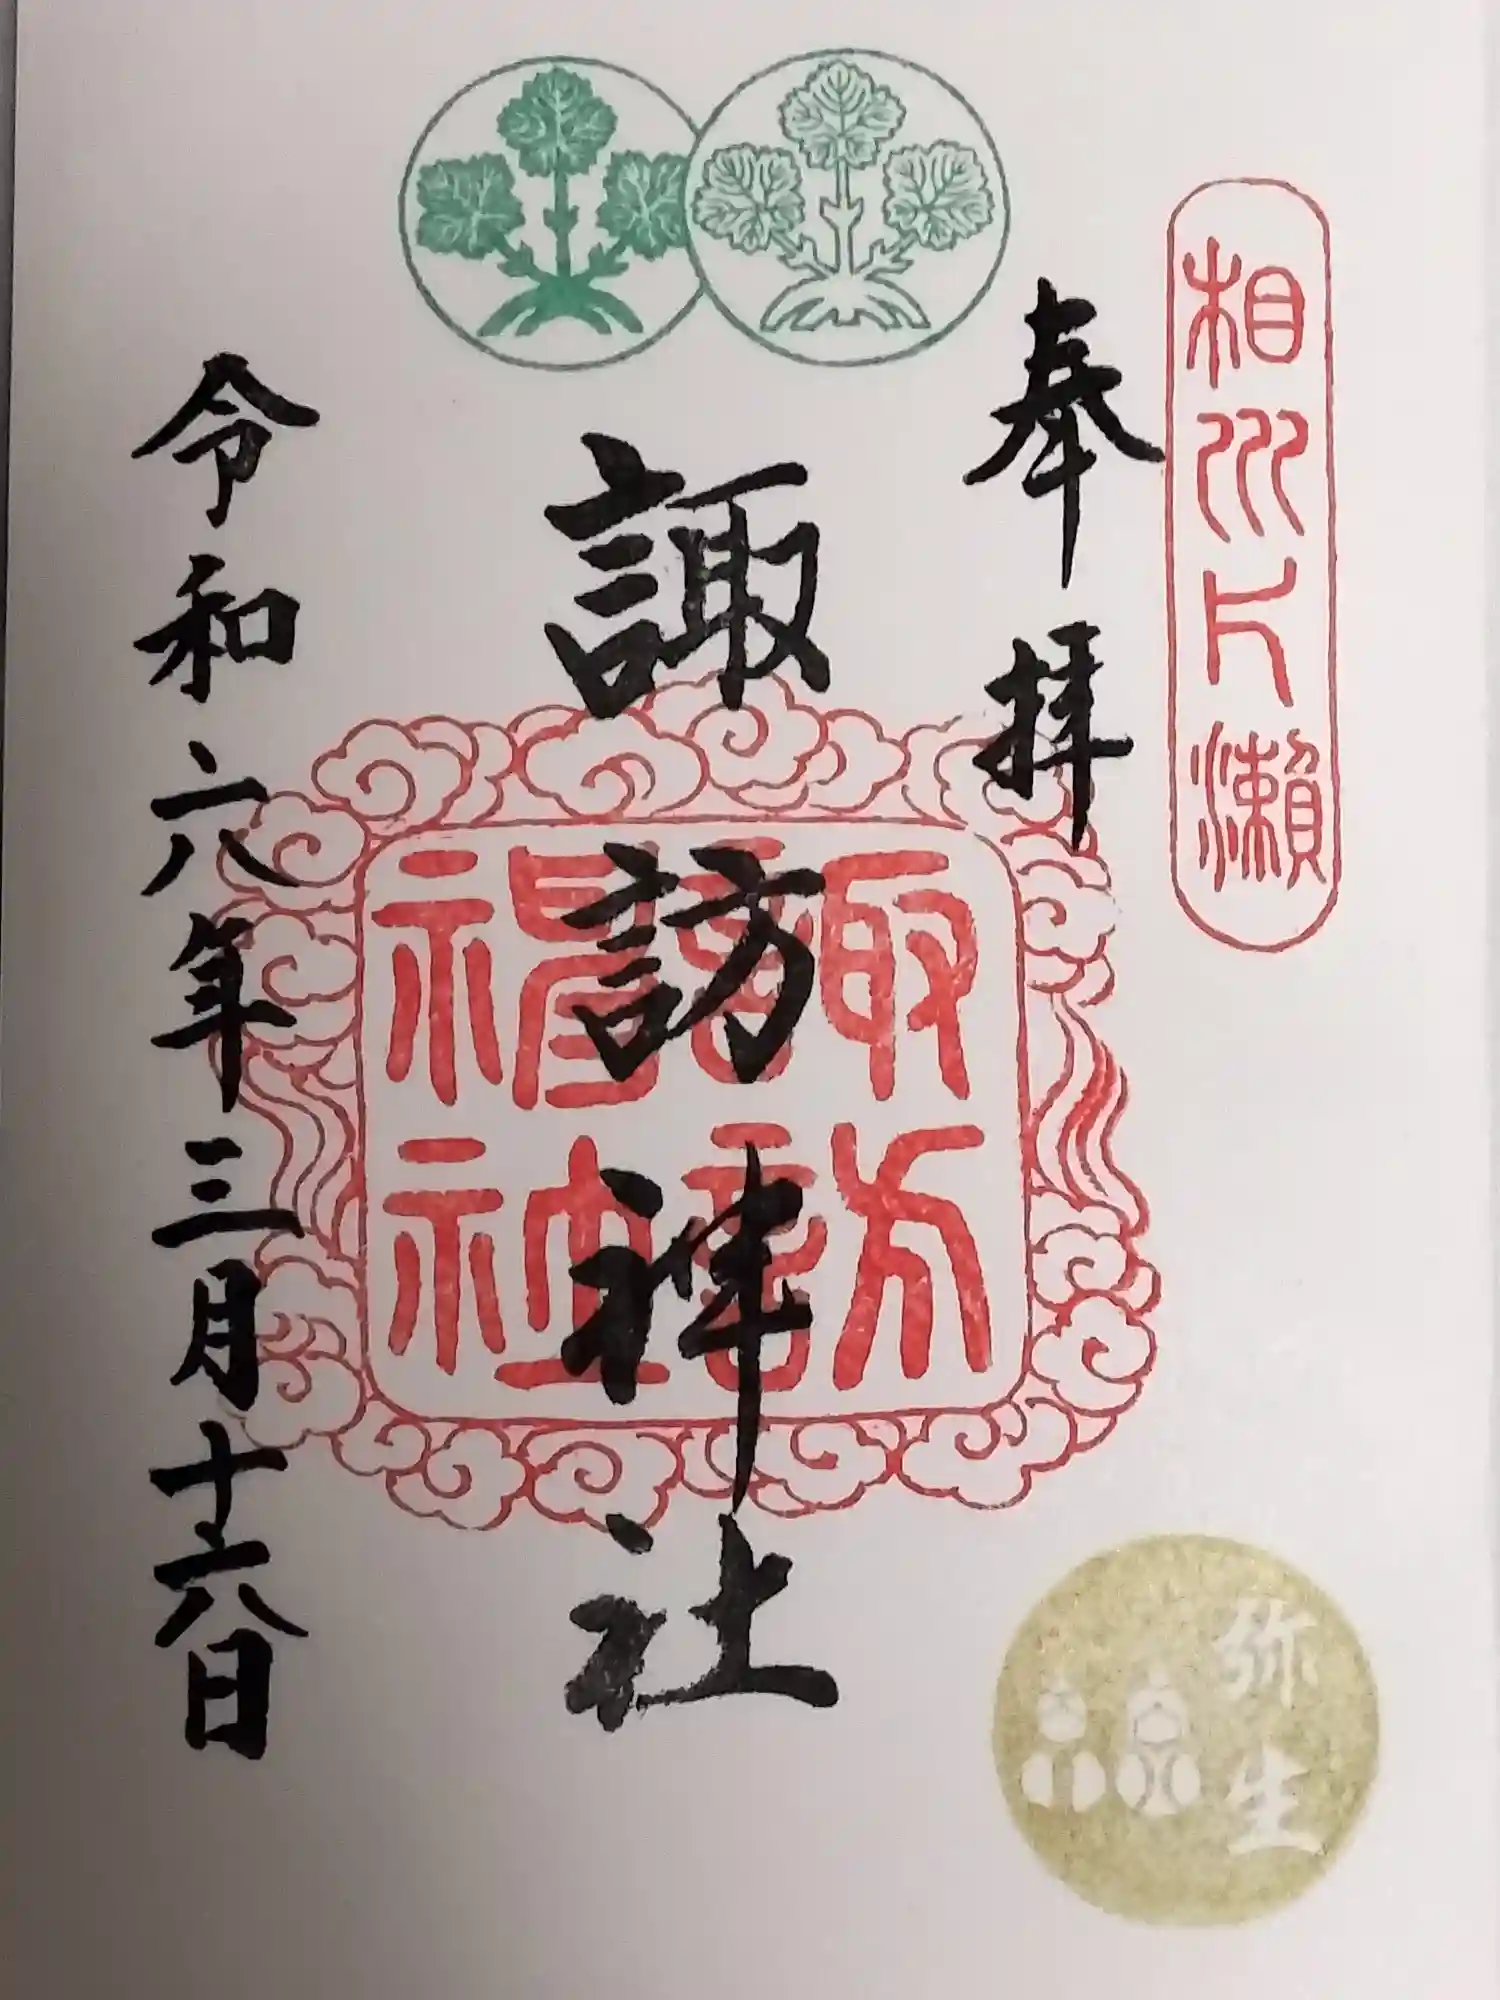 相州片瀬
奉拝
諏訪神社
諏訪神社
令和六年三月十六日
弥生